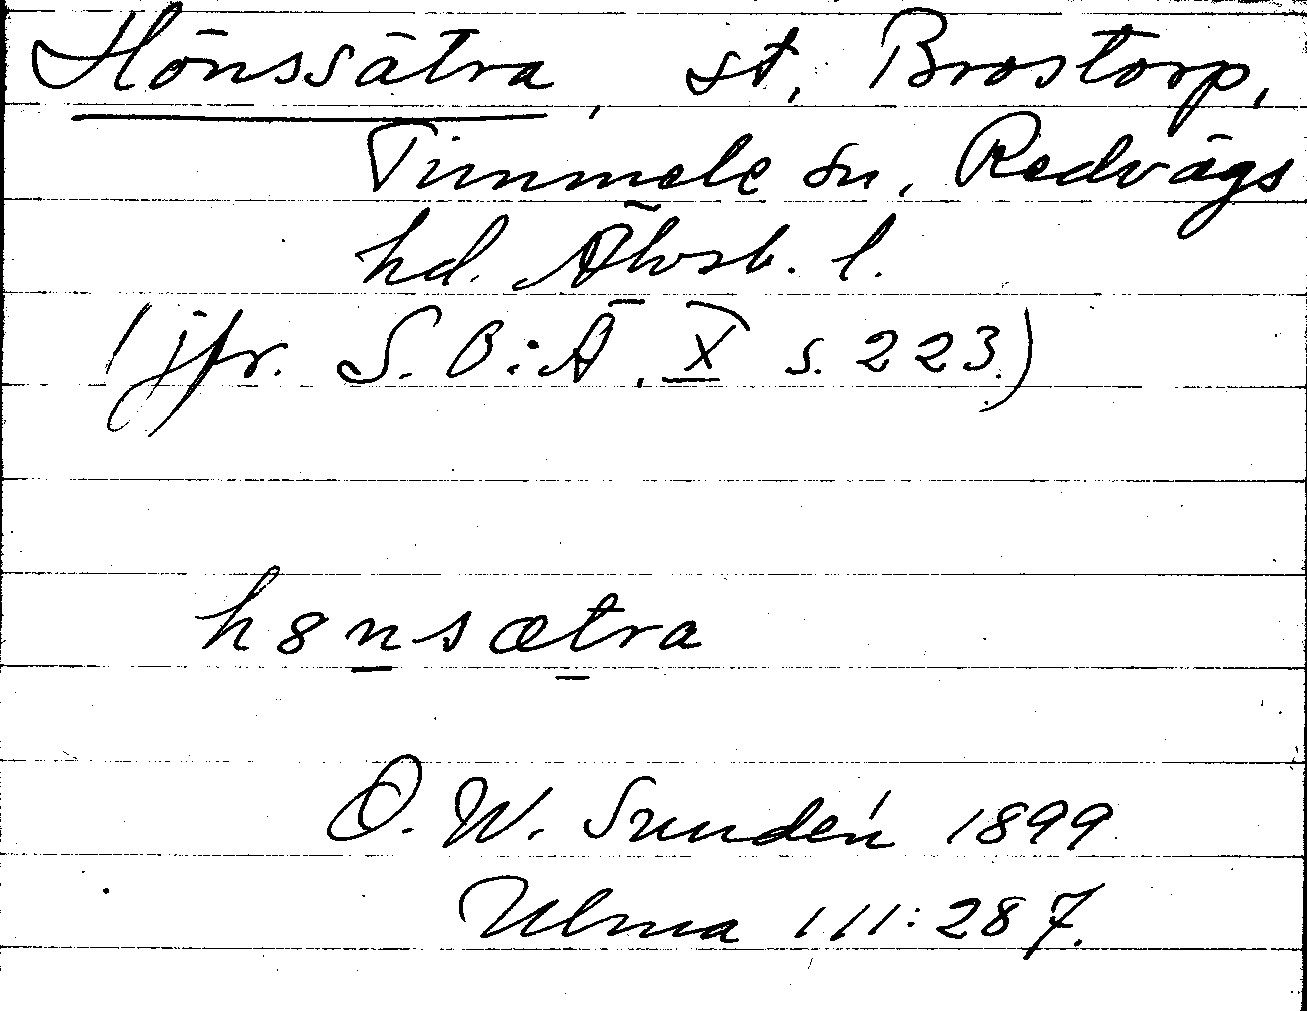 Hönssätra, st, Brostorp,
Timmele sn, Redvägs
hd. Älvsb. l.
(jfr. S. O : Ä, X s. 223.)
h8nsætra
O. W. Sundén 1899
Ulma 111:287.